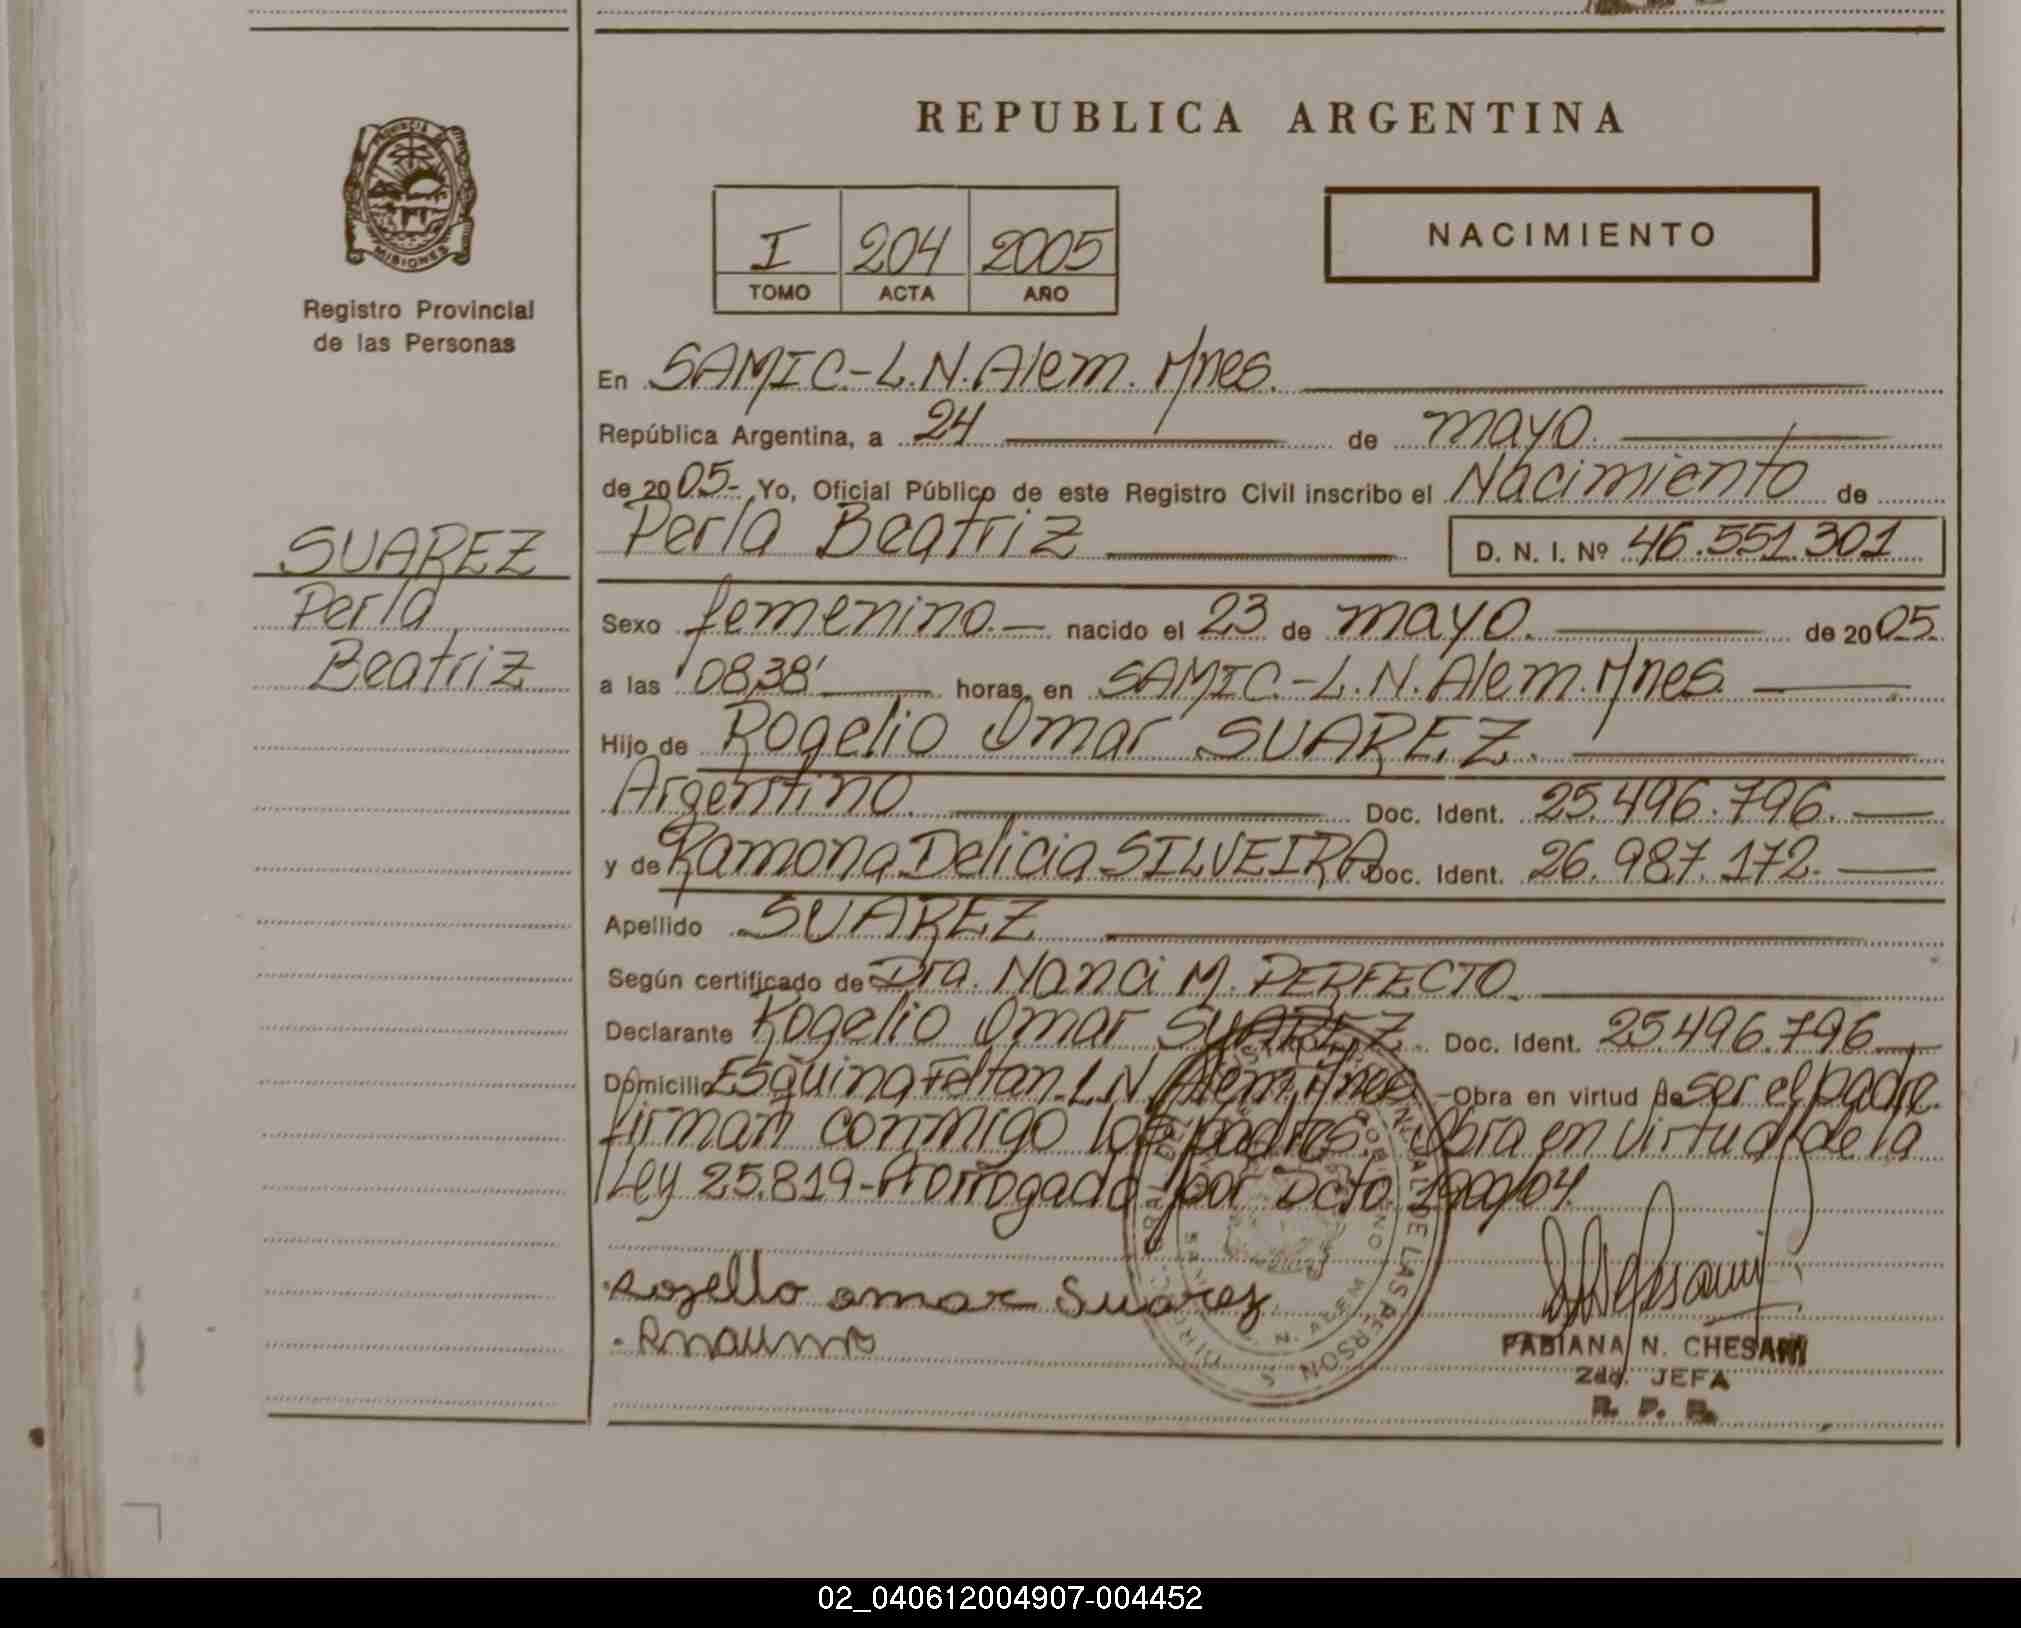 REPUBLICA ARGENTINA
PROVINCIA DE
MISIONES
Registro Provincial
de las Personas
I 204 2005
TOMO ACTA AÑO
NACIMIENTO
En SAMIC-L.N.Alem. Mnes.
República Argentina, a 24 de mayo.
de 2005- Yo, Oficial Público de este Registro Civil inscribo el Nacimiento de
Perla Beatriz D. N. I. Nº 46.551.301
SUAREZ
Perla
Beatriz
Sexo femenino.- nacido el 23 de mayo. de 2005.
a las 08,38' horas, en SAMIC.-L.N.Alem.Mnes.
Hijo de Rogelio Omar SUAREZ.
Argentino. Doc. Ident. 25.496.796.
y de Ramona Delicia SILVEIRA Doc. Ident. 26.987.172.
Apellido SUAREZ
Según certificado de Dra. Nanci M. PERFECTO.
Declarante Rogelio Omar SUAREZ. Doc. Ident. 25.496.796
Domicilio Esquina L.N. Alem. Mnes - Obra en virtud de ser el padre.
firman conmigo los padres, Obra en virtud de la
Ley 25.819-Prorrogado por Dcto 1900/04.
Rogelio omar Suarez
FABIANA N. CHESANI
2da. JEFA
R. P. P.
02_040612004907-004452